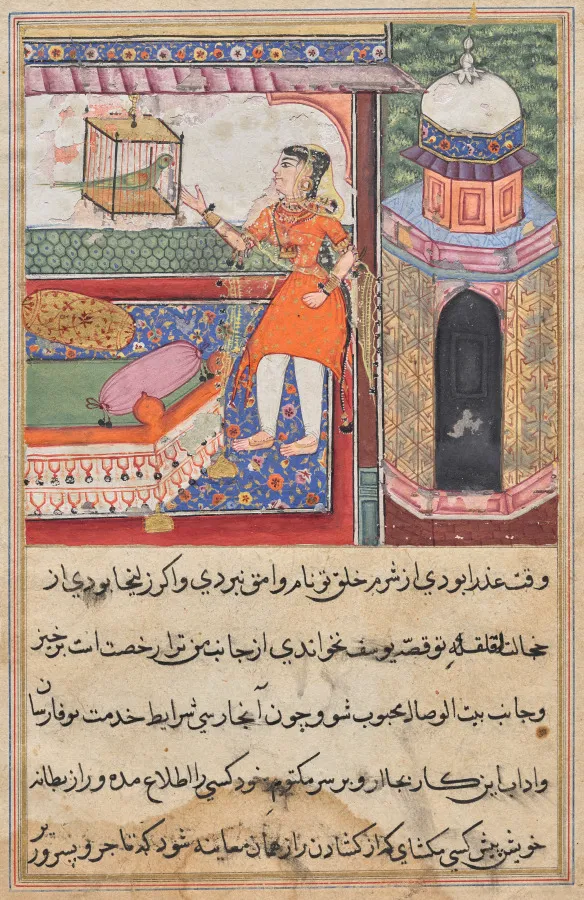 وقت عذرا بودي از شرم خلق تو نام وامق نبردي واكر زليخا بودي از
خجالت قلقله تو قصّه يوسف نخواندي از جانب من ترا رخصت است برخيز
وجانب بيت الوصال محبوب شو و چون آنجا رسي شرايط خدمت نو فارسان
واداب اين كار بجا ار و بر سر مكتوم خود كسي را اطلاع مده و راز بطانه
خويش پيش كسي مكشاي كه از كشادن راز همان معاينه شود كه تاجر و پسر ور بر